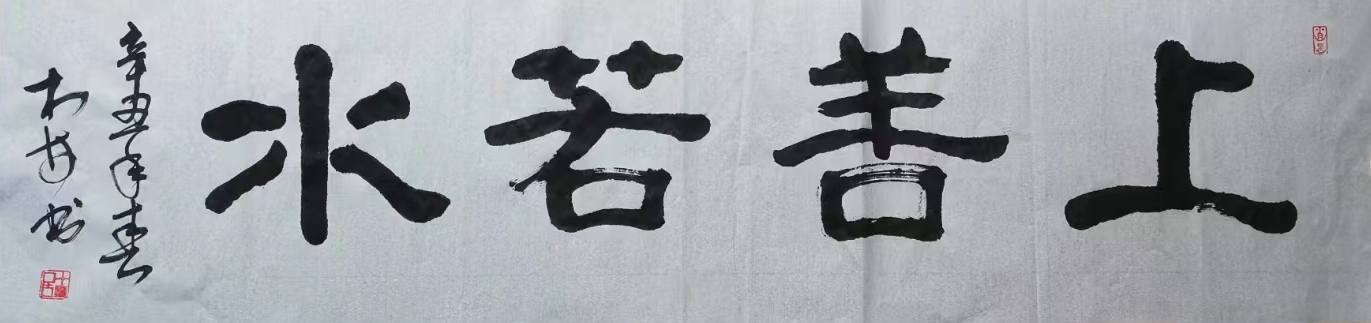 上善若水
辛丑年春
书